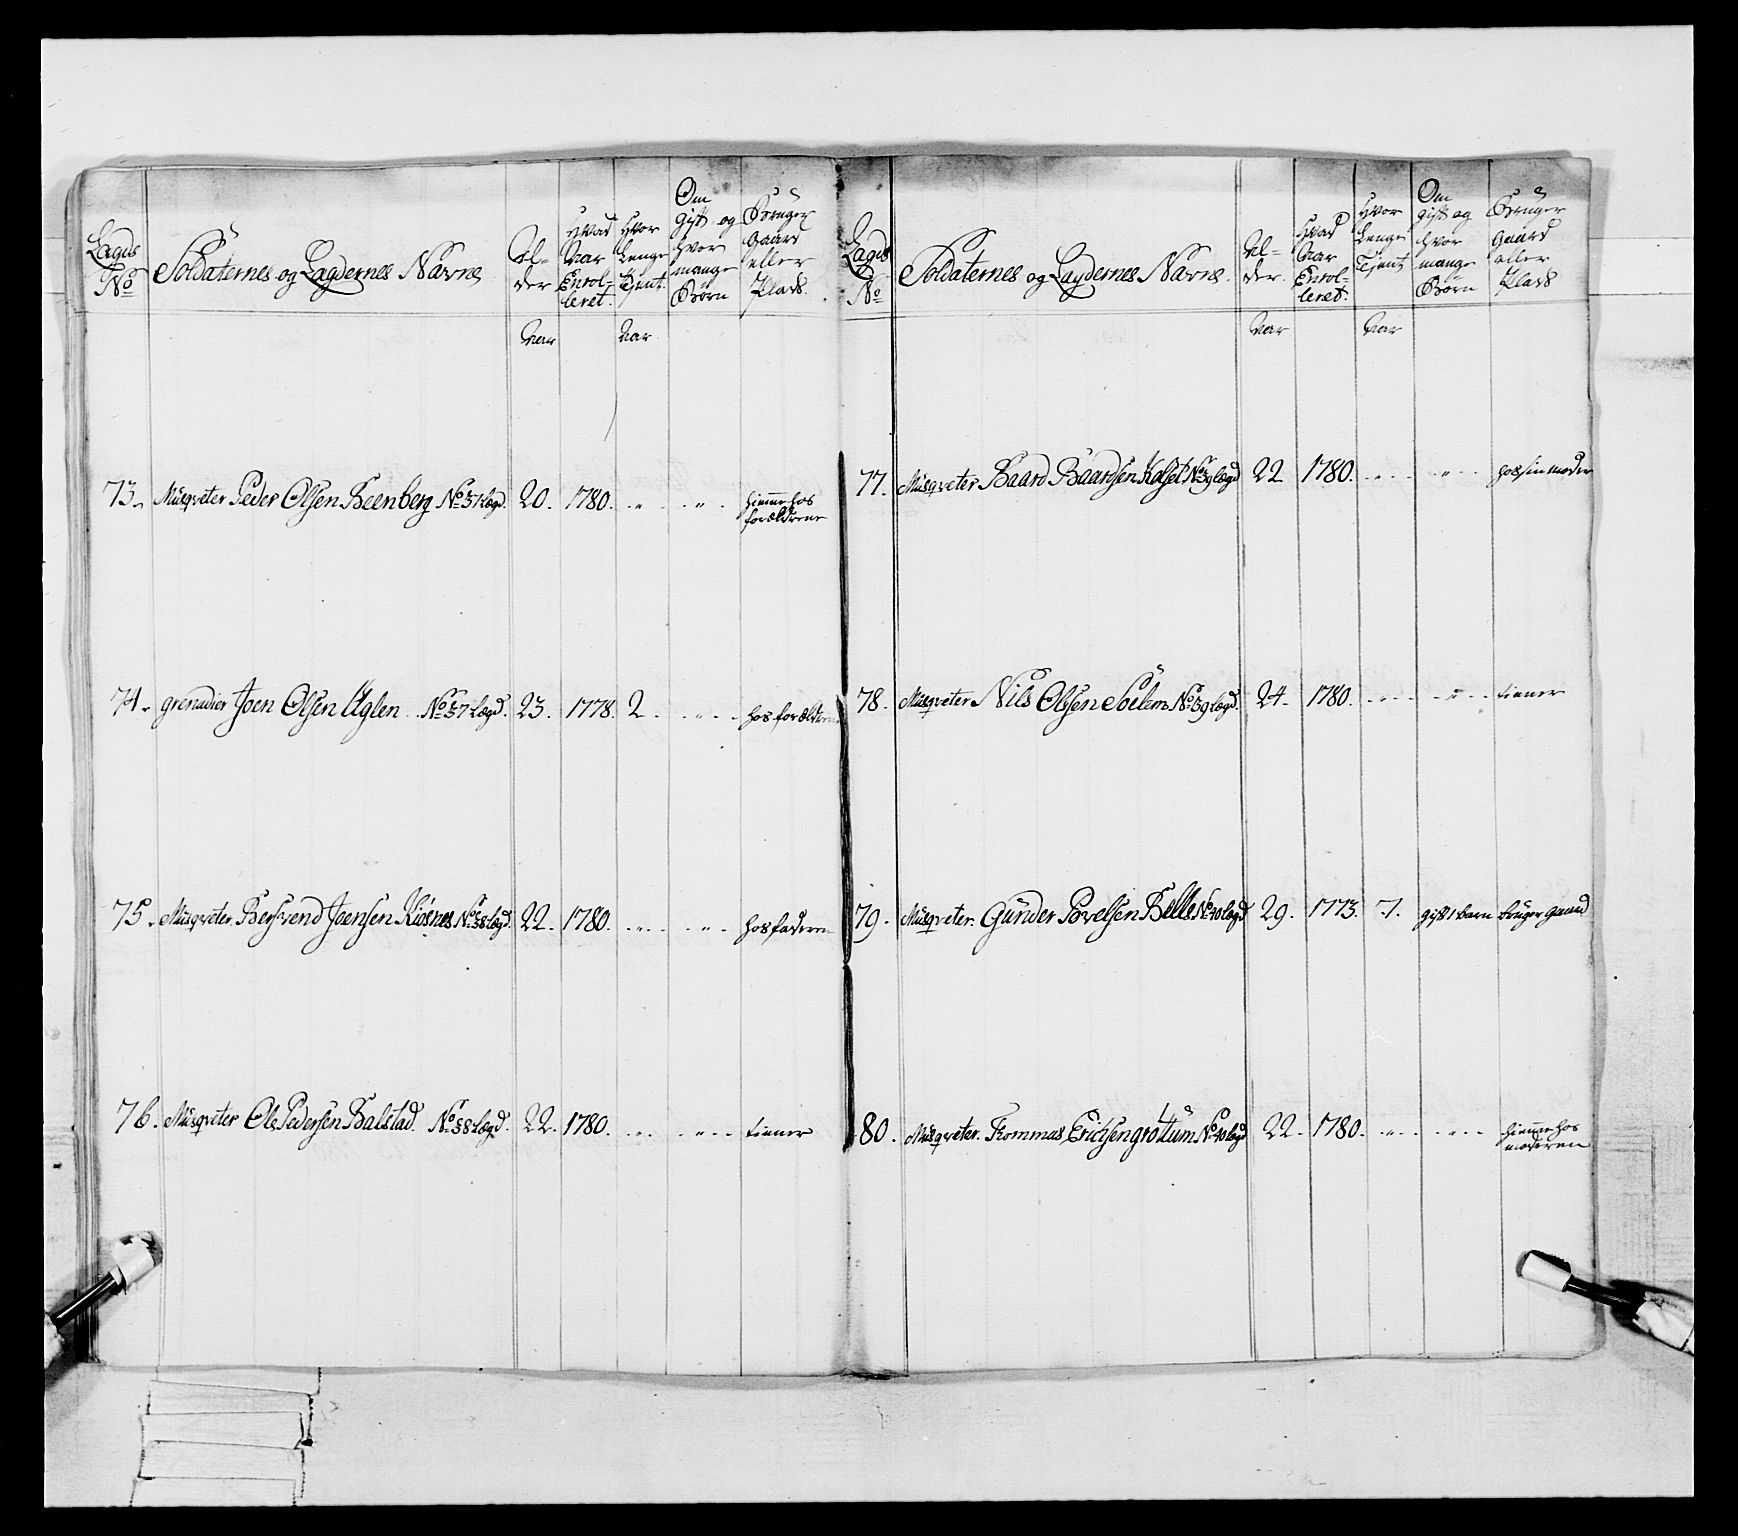 Lægds No
Soldaternes og Lægdernes Navne
Al-
der
Hvad
Aar
Enrol-
leret.
Hvor
Lenge
Tjent
Om
gift og
hvor
mange
Børn
Bruger
Gaard
eller
Plads.
Aar
Aar
73. Musqveter Peder Olsen Steenberg No 37 lægd. 20. 1780. hiemme hos
forældrene
74. grenadier Joen Olsen Uglen No 37 Lægd. 23. 1778. 2. hos forældrene
75. Musqveter Joensen Kiøsnes No 38 lægd. 22. 1780. hos faderen
76. Musqveter Ole Pedersen Balstad No 38 lægd. 22. 1780. tienner
Lægds
No
Soldaternes og Lægdernes Navne.
Al-
der.
Hvad
Aar
Enrol-
leret.
Hvor
Lenge
Tjent
Om
gift og
hvor
mange
Børn
Bruger
Gaard
eller
Plads
Aar
Aar
77. Musqveter Baard Baardsen No 39 lægd 22 1780. hos sin moder
78. Musqveter Nils Olsen Soelem No 39 lægd. 24. 1780. tienner
79. Musqveter. Gunder Povelsen Belle No 40 lægd 29. 1773. 7. gift 1 barn bruger gaard
80. Musqveter. Tommas Erichsen grottum No 40 lægd 22. 1780. hiemme hos
moderen